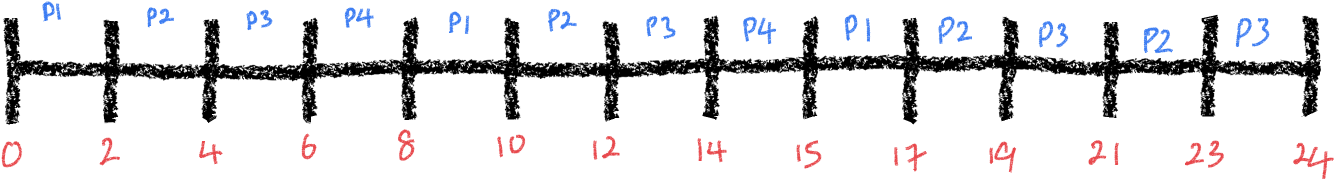 P1 P2 P3 P4 P1 P2 P3 P4 P1 P2 P3 P2 P3
0 2 4 6 8 10 12 14 15 17 19 21 23 24